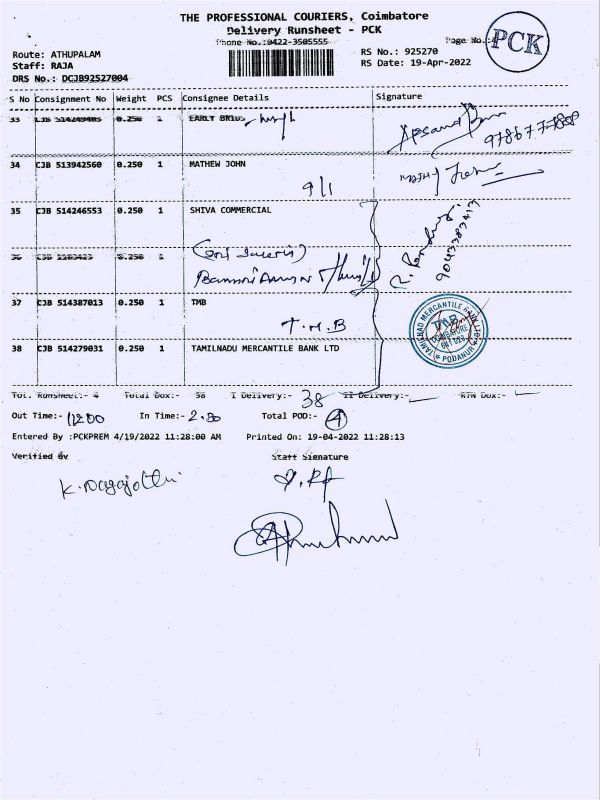 THE PROFESSIONAL COURIERS, Coimbatore
Delivery Runsheet - PCK
Phone No.:0422-3505555
Page No.:4
PCK
Route: ATHUPALAM
Staff: RAJA
DRS No.: DCJB92527004
RS No.: 925270
RS Date: 19-Apr-2022
S No Consignment No Weight PCS Consignee Details Signature
33 CJB 514249405 0.250 1 EARLY BRIDS
9786777888
34 CJB 513942560 0.250 1 MATHEW JOHN
9/1
35 CJB 514246553 0.250 1 SHIVA COMMERCIAL
36 CJB 0.250 1
37 CJB 514387013 0.250 1 TMB
T.M.B
TAMILNAD MERCANTILE BANK LTD
TMB
COIMBATORE
641 023
PODANUR
38 CJB 514279031 0.250 1 TAMILNADU MERCANTILE BANK LTD
Tot. Runsheet:- 4 Total Dox:- 38 I Delivery:- 38 II Delivery:- RTN Dox:-
Out Time:- In Time:- Total POD:- 4
Entered By :PCKPREM 4/19/2022 11:28:00 AM Printed On: 19-04-2022 11:28:13
Verified By Staff Signature